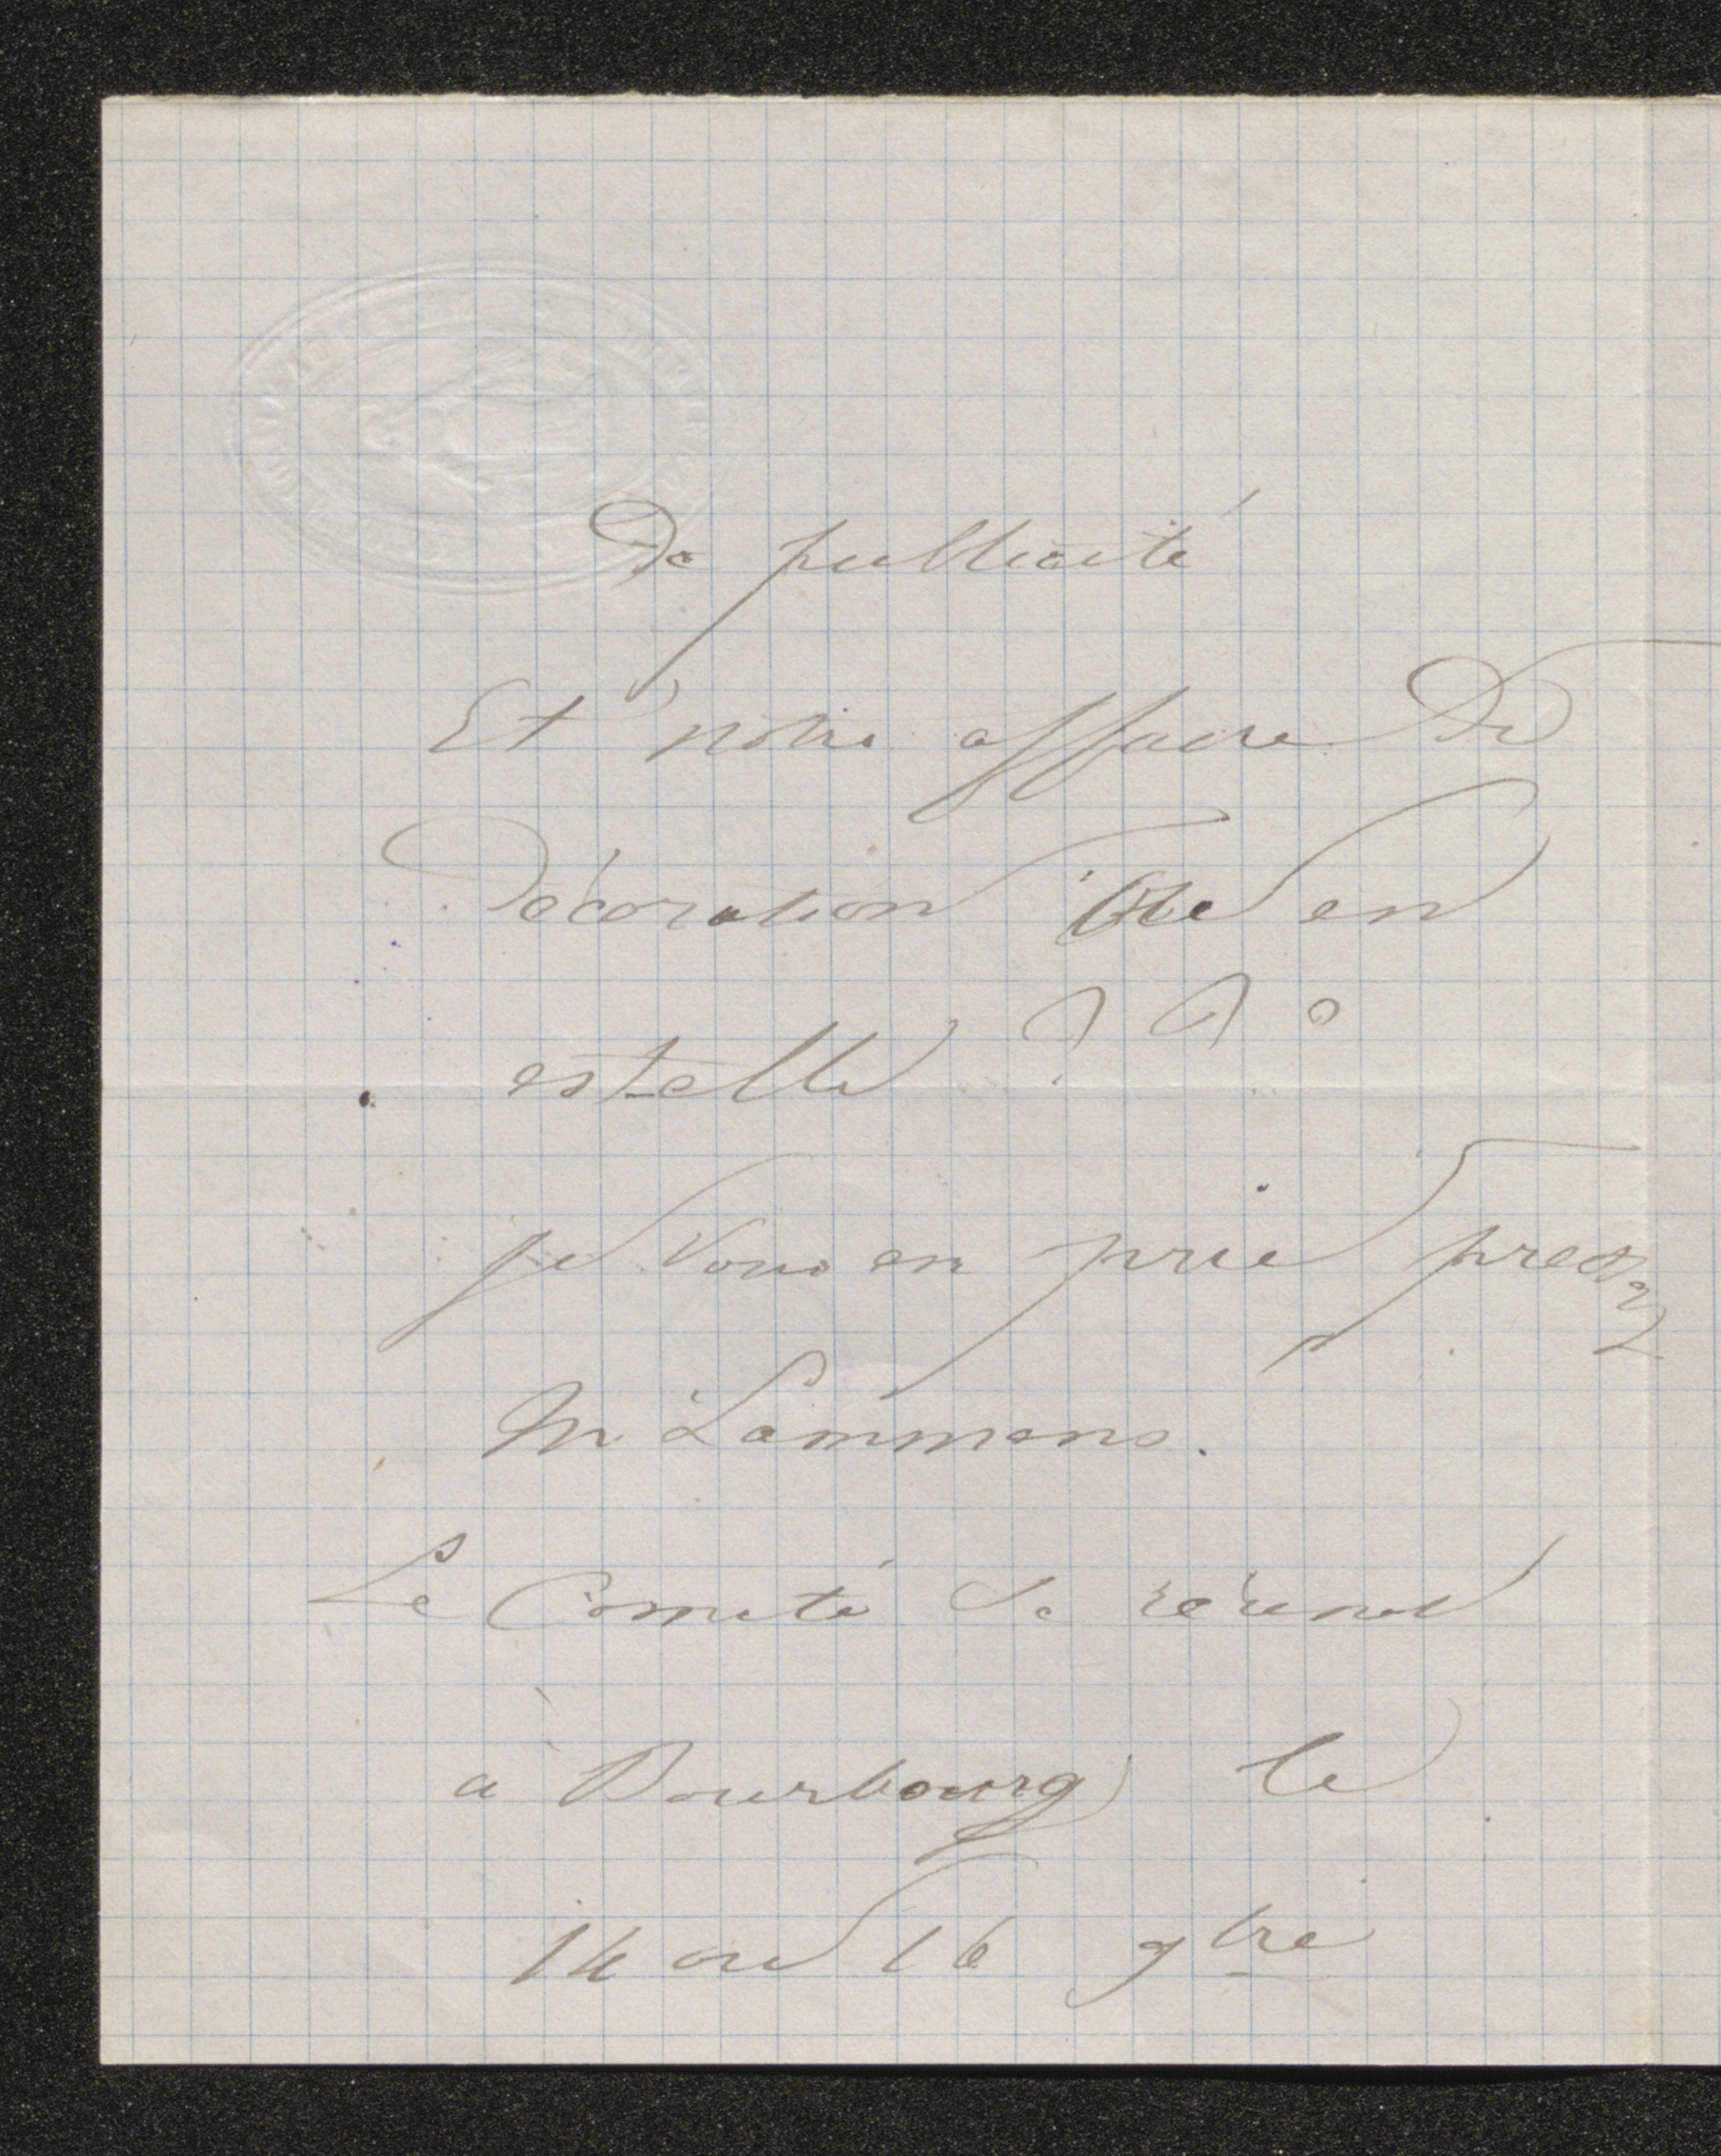 De publicité
Et notre affaire De
Décoration Où en
est-elle ? ? ?
je vous en prie pressez
Mr Lammens.
Le Comité se réunit
à Bourbourg le
14 ou 16 9bre